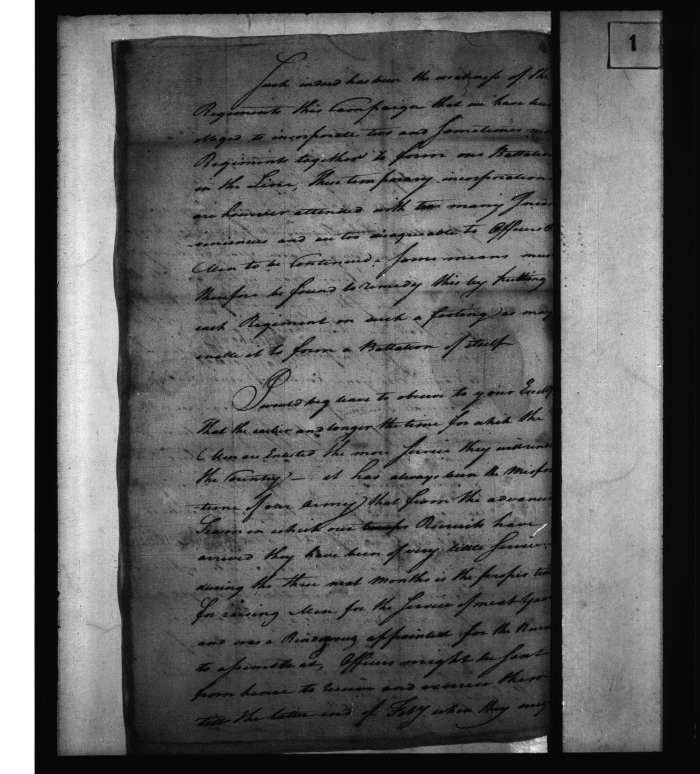 1
Such indeed has been the weakness of the
Regiments this Campaign that we have been
obliged to incorporate two and sometimes
Regiments together to form one Battalion
in the Line, These temporary incorporations
are however attended with too many Incon
veniences and are too disagreeable to Officers &
Men to be Continued. Some means must
therefore be found to remedy this by putting
each Regiment on such a footing as may
enable it to form a Battalion of itself
I would beg leave to observe to your Excelly
That the earlier and longer the time for which the
Men are Enlisted the more Service they will render
the Country — it has always been the Misfor
tune of our Army that from the advanced
Season in which our troops Recruits have
arrived they have been of very little Service
during the three next Months is the proper time
for raising Men for the Service of next Year
and was a Rendezvous appointed for the
to assemble at, Officers might be sent
from hence to receive and exercise them
till the latter end of Feby when they may